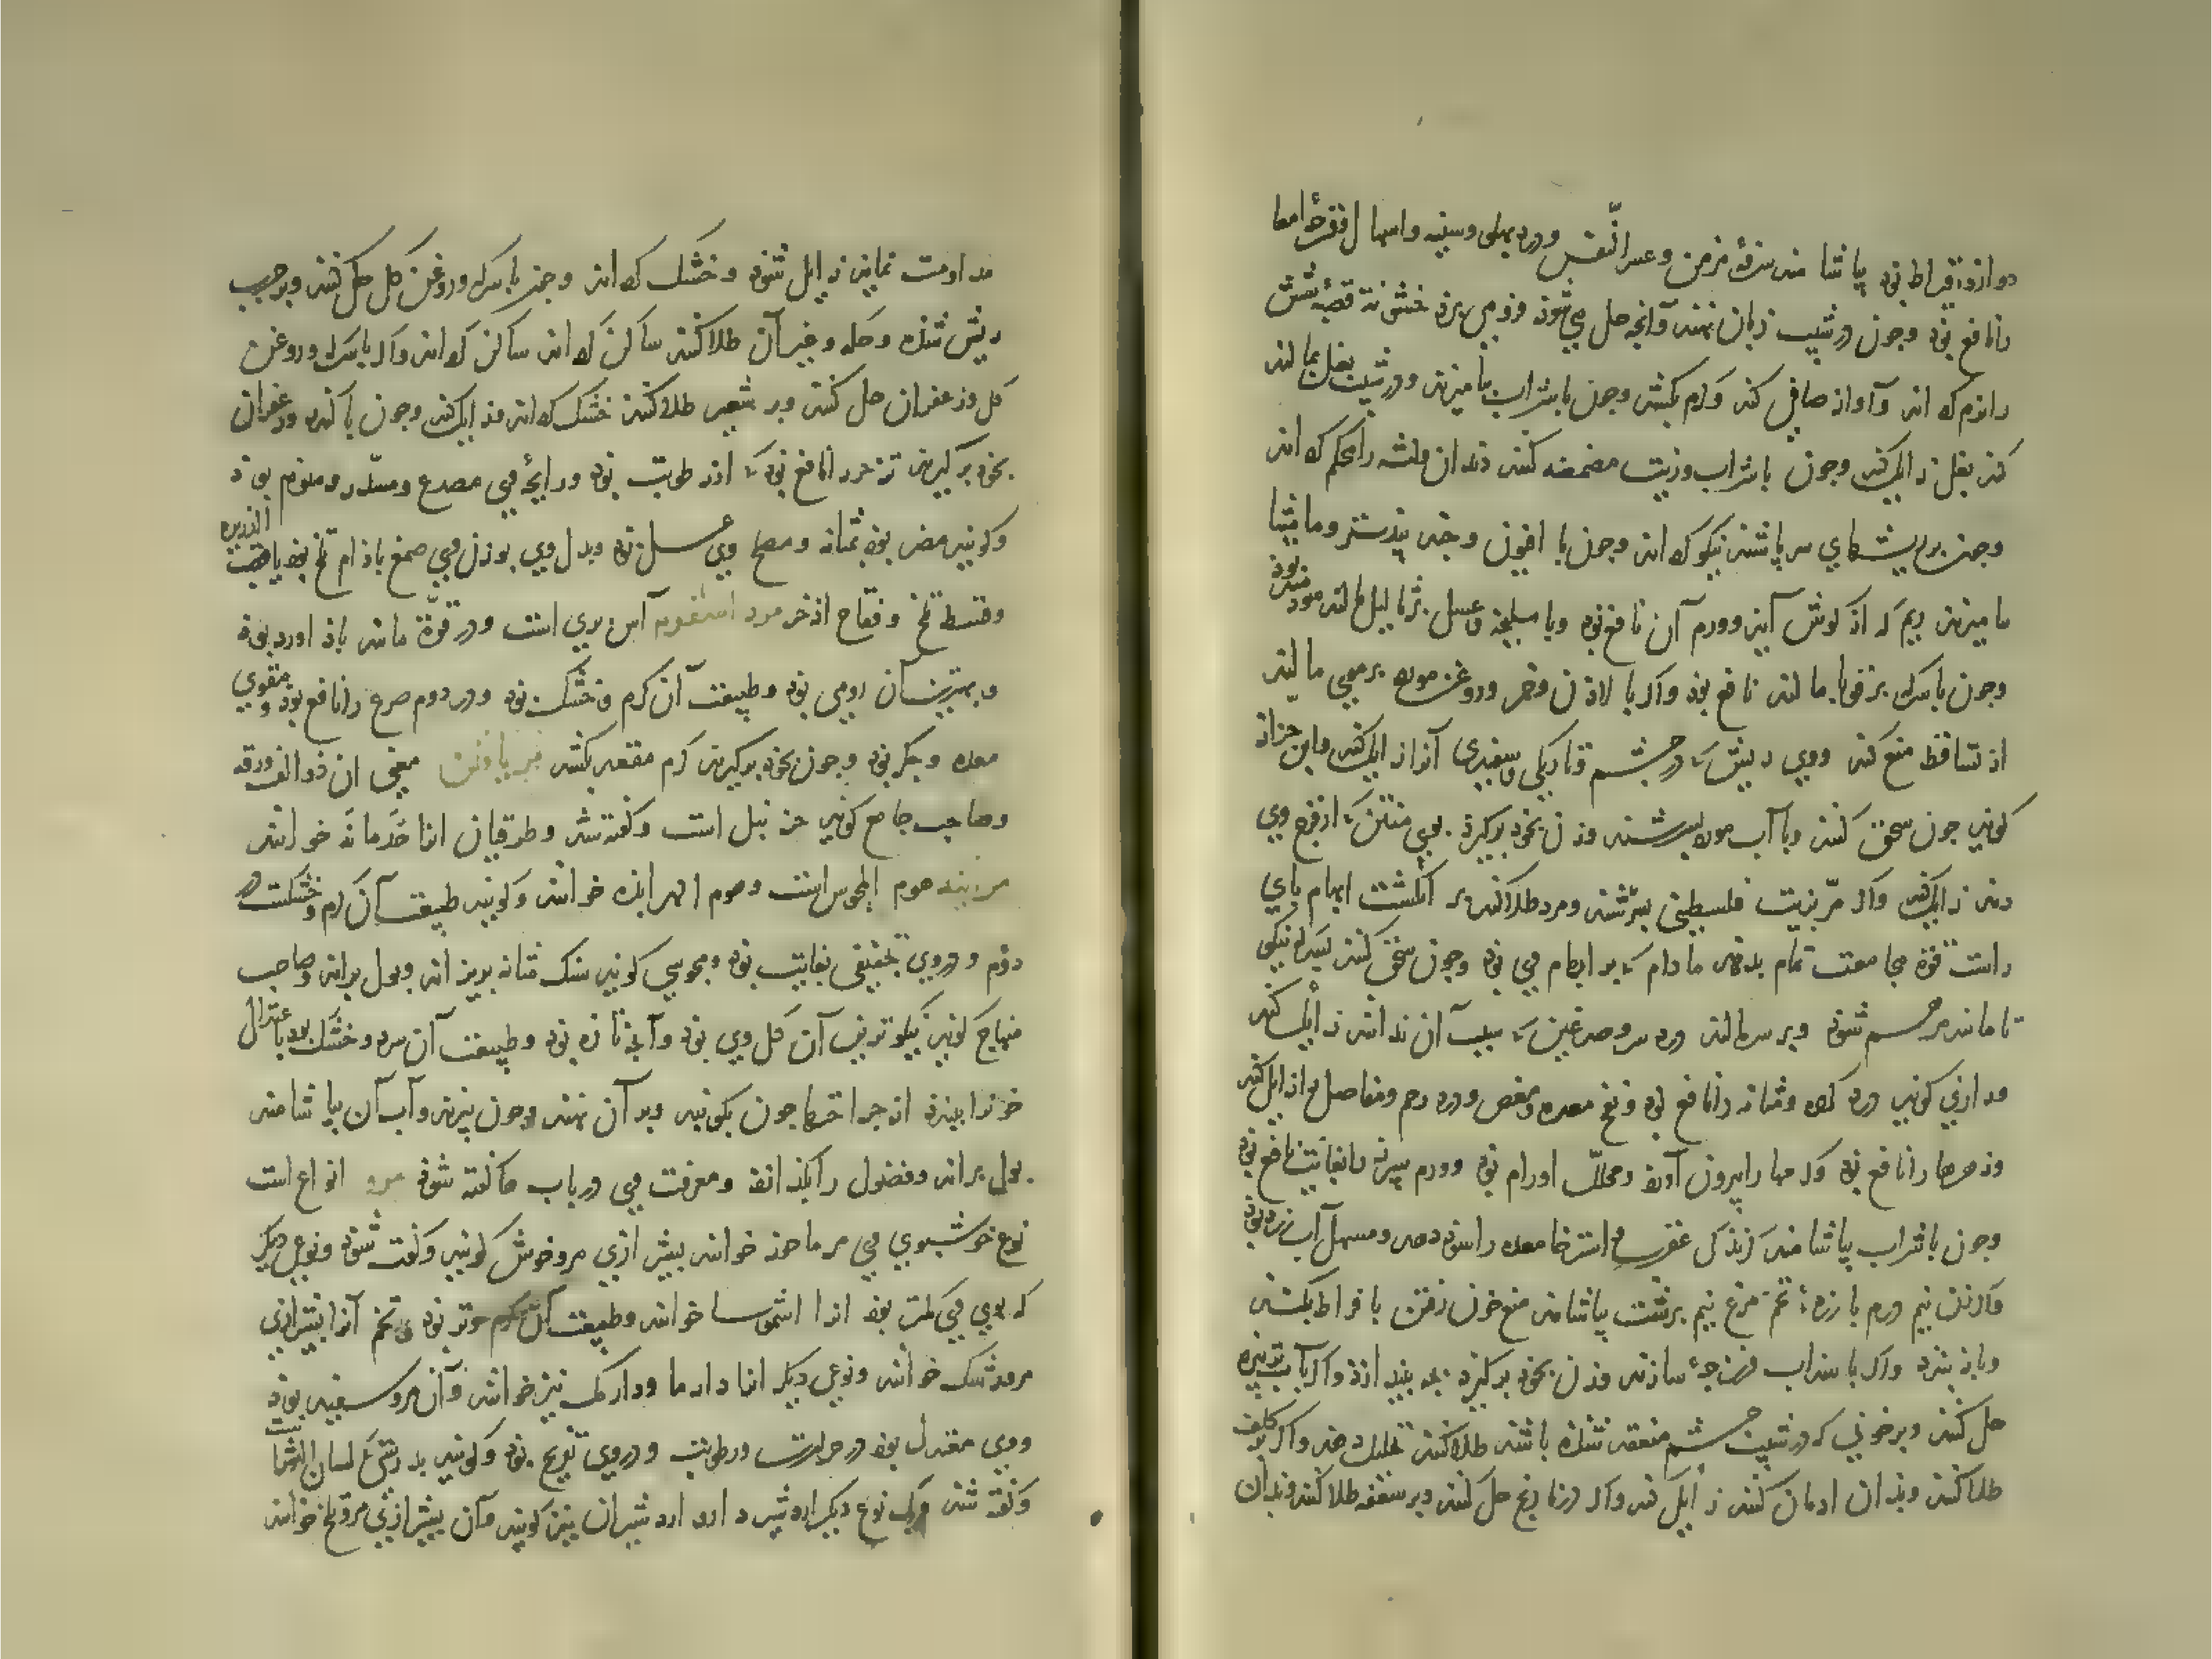 دوازده قیراط بود بیاشامند سرفهٔ مزمن و عسر النّفس و درد پهلو و سینه و اسهال و قرحهٔ امعا
را نافع بود و چون در شیب زبان نهند و آنچه حل می شود فرو می برد خشونة قصبهٔ شش
را نرم کرداند و آواز صافی کند و کرم بکشد و چون با شراب بیامیزند و در شیب بغل بمالند
کند بغل زایل کند و چون با شراب و زیت مضمضه کنند دندان و لثه را محکم کرداند
و چون بر ریشهای سر پاشند نیکو کرداند و چون با افیون و جند بیدستر و مامیثا
بیامیزند ریم که از کوش آید و ورم آن نافع بود و با سلیخه و عسل بر ثالیل مالند سودمند بود
و چون با سرکه بر قوبا مالند نافع بود و اکر با لادن و خمر و روغن مورد بر موی مالند
از تساقط منع کند و وی ریش که در چشم و تاریکی و سفیدی آنرا زایل کند و ابن جزار
کوید چون سحق کنند و با آب مورد بسرشند و زن بخود برکیرد بوی منتن که از فرج وی
دمد زایل کند و اکر مرّ بزیت فلسطینی بسرشند و مرد طلا کند بر انکشت ابهام پای
راست قوة مجامعت تمام بدهد مادام که بر ابهام وی بود و چون سحق کنند بسرکه نیکو
تا مانند مرهم شود و بر سر مالند درد سر و صدغین که سبب آن ندانند زایل کند
و رازی کوید درد کرده و مثانه را نافع بود و نفخ معده و مغص و درد رحم و مفاصل را زایل کند
و زهرها را نافع بود و کرمها را بیرون آورد و محلّل اورام بود و ورم سپرز را بغایت نافع بود
و چون با شراب بیاشامند کزندکی عقرب و استرخا معده را سود دهد و مسهل آب زرد بود
و اکر نیم درم با زردهٔ تخم مرغ نیم برشت بیاشامند منع خون رفتن بافراط بکند
و باز بندد و اکر با سداب فرزجهٔ سازند و زن بخود برکیرد بچه بیندازد و اکر با آب کزبره
حل کنند و بر خونی که در شیب چشم منعقد شده باشد طلا کنند تحلیل دهد و اکر بر کلف
طلا کنند و بدان ادمان کنند زایل کند و اکر در نارنج حل کنند و بر سعفه طلا کنند و بدان
مداومت نمایند زایل شود و خشک کرداند و چون با سرکه و روغن کل حل کنند و بر جرب
ریش شده و حکه و غیر آن طلا کنند ساکن کرداند ساکن کرداند و اکر با سرکه و روغن
کل و زعفران حل کنند و بر شعیر طلا کنند خشک کرداند و زایل کند و چون با کندر و زعفران
بخود برکیرند تزحر را نافع بود که از رطوبت بود و رایحهٔ وی مصدع و مسدّر و منوم بود
و کویند مضر بود بمثانه و مصلح وی عسل بود و بدل وی بوزن وی صمغ بادام تلخ بود یا قصب الذریره
و قسط تلخ و فقاح اذخر مرد اسفروم آس بری است و در قوّة مانند باذاورد بود
و بهترین آن رومی بود و طبیعت آن کرم و خشک بود و در دوم صرع را نافع بود و مقوی
معده و جکر بود و چون بخود برکیرند کرم مقعد بکشد مریافلن معنی آن ذو الف ورقه
و صاحب جامع کوید حزنبل است و کفته شد و طرقیان آنا خدمانه خوانند
مرانیه هوم المجوس است و هوم آلهرانیده خوانند و کویند طبیعت آن کرم و خشکست در
دوم و در وی تجفیفی بغایت بود و مجوسی کویند سنک مثانه بریزاند و بول براند و صاحب
منهاج کوید نیکوترین آن کل وی بود و آنچه تازه بود و طبیعت آن سرد و خشک بود باعتدال
خون را ببندد از جراحتها چون بکوبند و بر آن نهند و چون بپزند و آب آن بیاشامند
بول براند و فضول را بگدازاند و معرفت وی در باب ها کفته شود مرو انواع است
نوع خوشبوی وی مرماحوز خوانند بشیرازی مروخوش کویند و کفته شود و نوعی دیکر
که بوی وی کمتر بود آنرا اشموسا خوانند و طبیعت آن کرم و تر بود و تخم آنرا بشیرازی
مرو رشک خوانند و نوعی دیکر آنرا دارما و دارمک نیز خوانند و آن مرو سفید بود
و وی معتدل بود در حرارت و رطوبت و در وی تفریح بود و کویند بدرستی که لسان الثور است
و کفته شد و یک نوع دیکر اردشیر دارو اردشیران نیز کویند و آن بشیرازی مرو تلخ خوانند